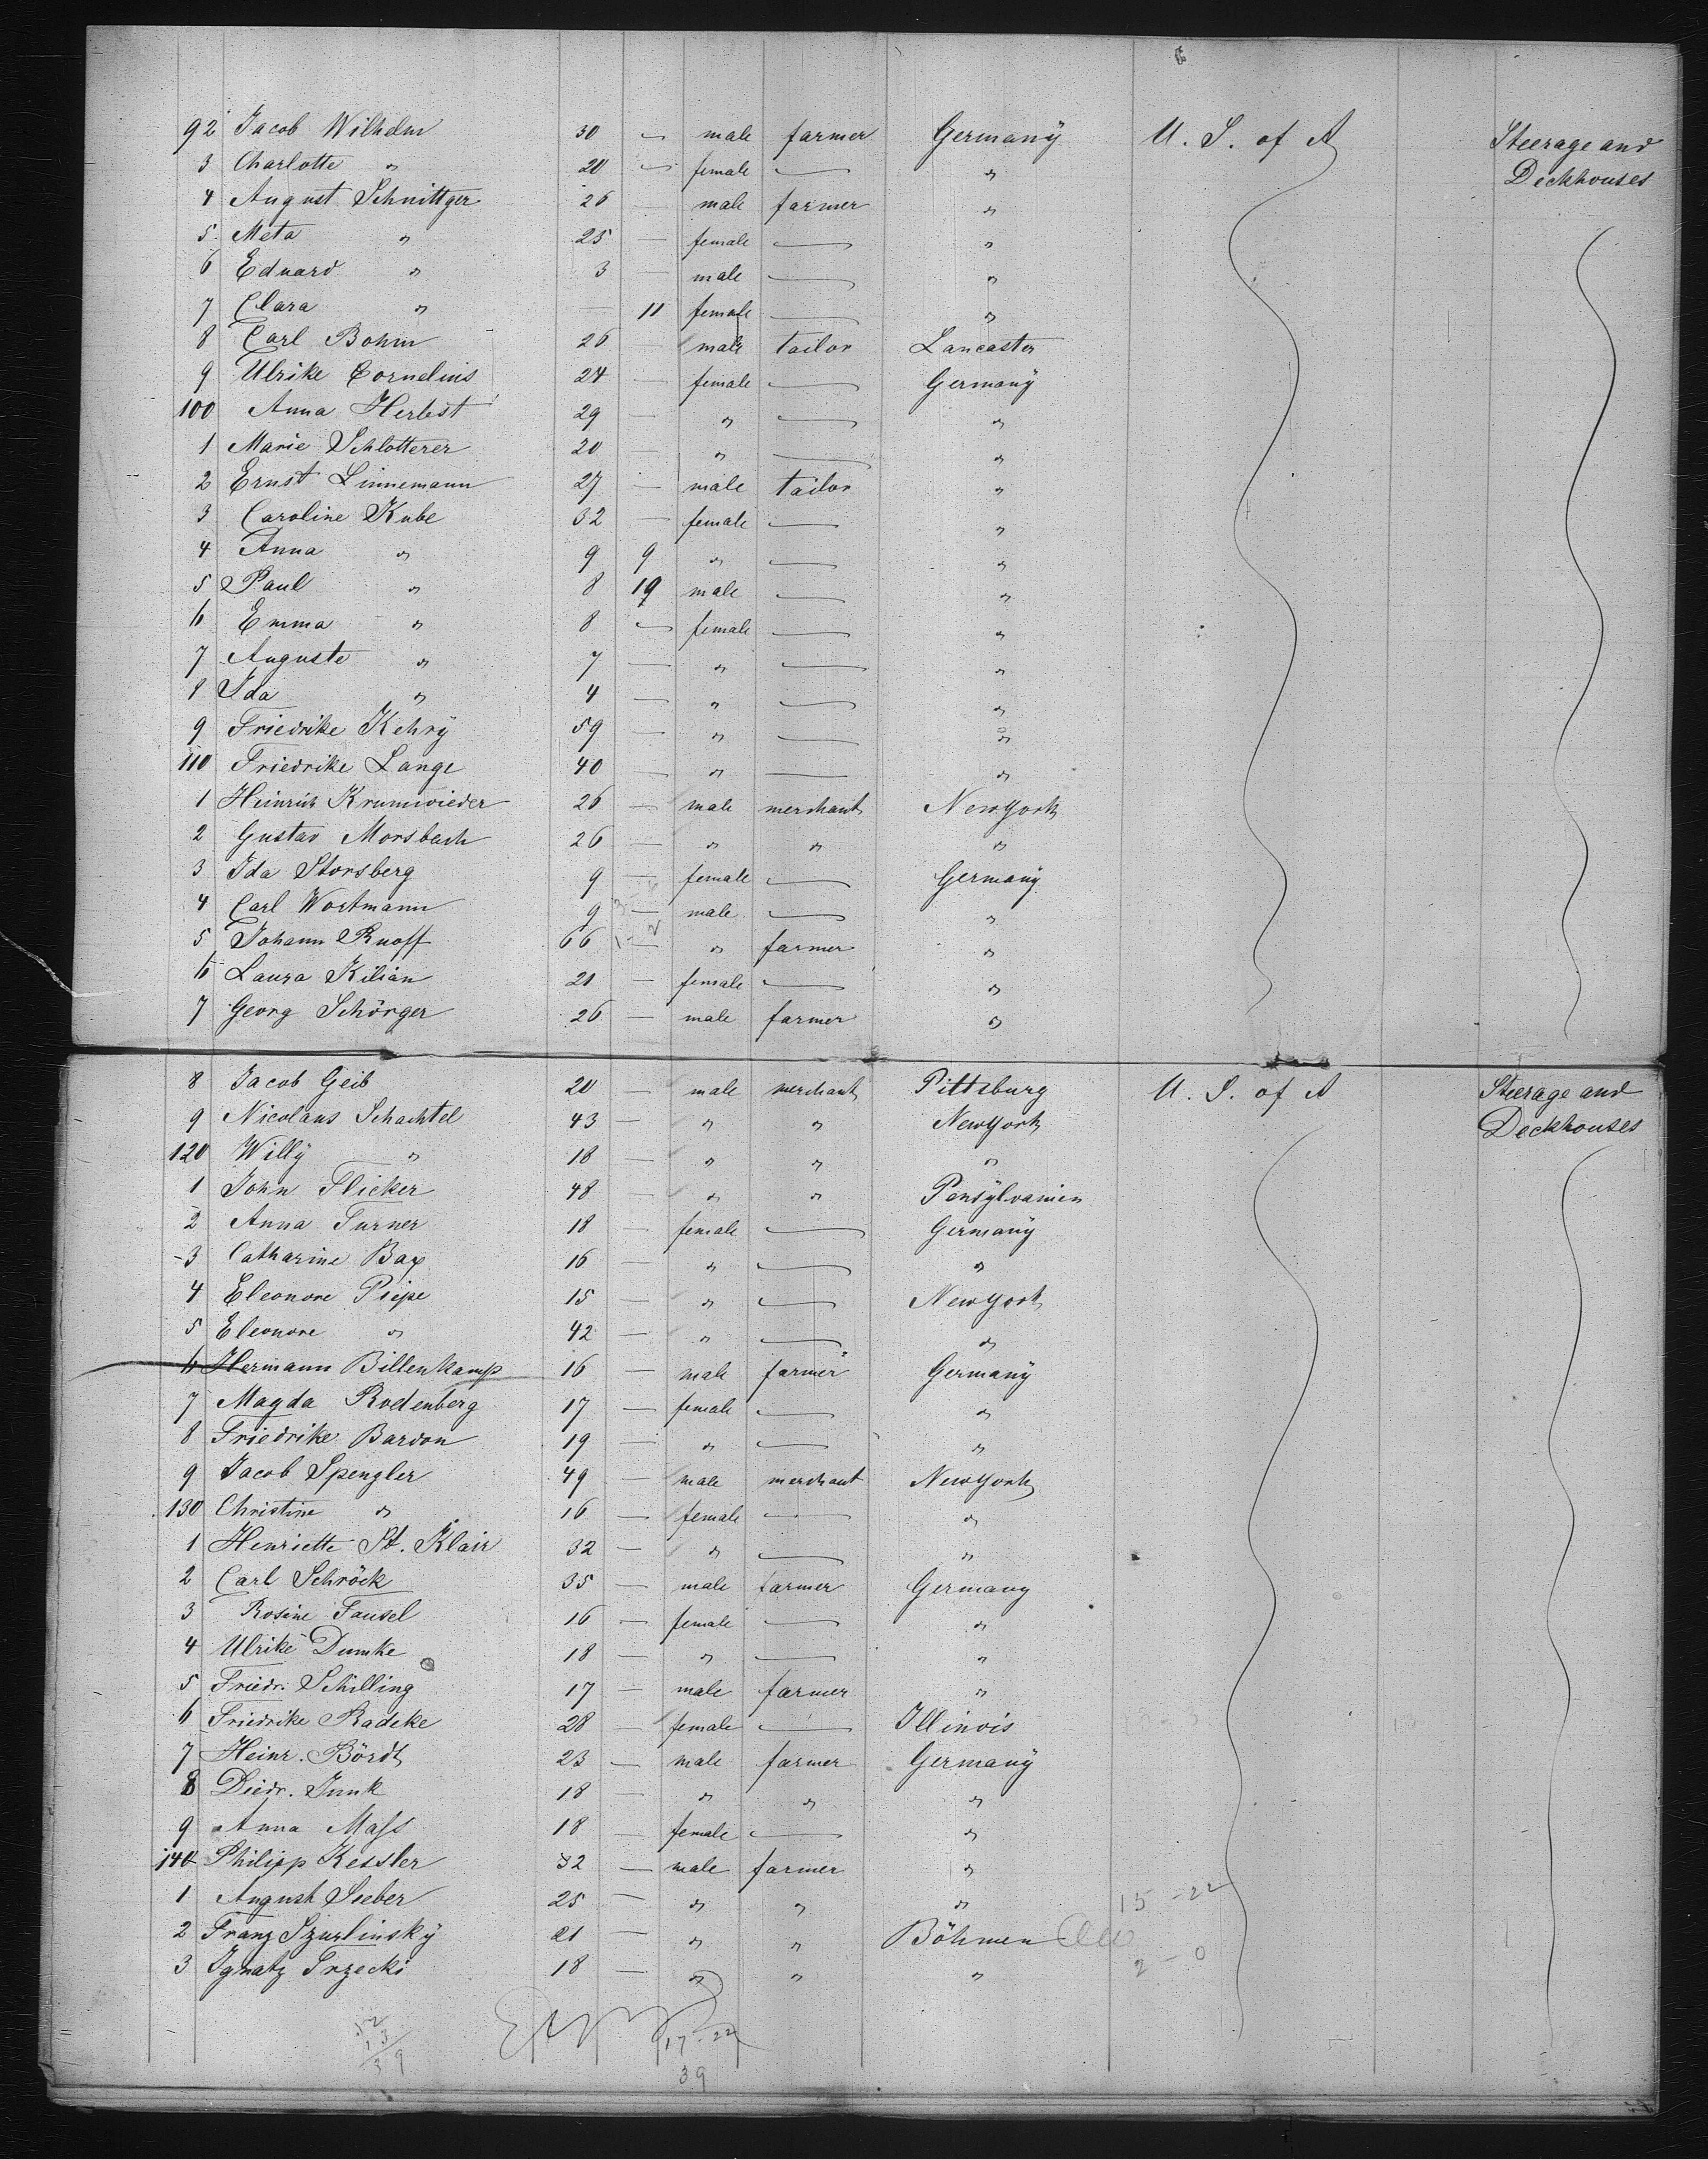 92 Jacob Wilhelm 30 — male farmer Germanÿ U. S. of A Steerage and
Deckhouses
3 Charlotte " 20 — female — "
4 August Schnittger 26 — male farmer "
5. Meta " 25 — female — "
6 Eduard " 3 — male — "
7 Clara " — 11 female — "
8 Carl Bohm 26 — male tailor Lancaster
9 Ulrike Cornelius 24 — female — Germanÿ
100 Anna Herbst 29 — " — "
1 Marie Schlotterer 20 — " — "
2 Ernst Linnemann 27 — male tailor "
3 Caroline Kube 32 — female — "
4 Anna " 9 9 " — "
5 Paul " 8 male — "
6 Emma " 8 — female — "
7 Auguste " 7 — " — "
8 Ida " 4 — " — "
9 Friedrike Kehrÿ 59 — " — "
110 Friedrike Lange 40 — " — "
1 Heinrich Krumwieder 26 — male merchant New York
2 Gustav Morsbach 26 — " " "
3 Ida Storsberg 9 — female — Germany
4 Carl Wortmann 9 — male — "
5 Johann Ruoff 66 — " farmer "
6 Laura Kilian 21 — female — "
7 Georg Schörger 26 — male farmer "
8 Jacob Geib 20 — male merchant Pittsburg U. S. of A Steerage and
Deckhouses
9 Nicolaus Schachtel 43 — " " New York
120 Willÿ " 18 — " " "
1 John Flicker 48 — " " Pensÿlvanien
2 Anna Turner 18 — female — Germanÿ
3 Catharine Bax 16 — " — "
4 Eleonore Piepe 15 — " — New York
5 Eleonore " 42 — " — "
6 Hermann Billenkamp 16 — male farmer Germanÿ
7 Magda Rodenberg 17 — female — "
8 Friedrike Bardon 19 — " — "
9 Jacob Spengler 49 — male merchant New York
130 Christine " 16 — female — "
1 Henriette St. Klair 32 — " — "
2 Carl Schröck 35 — male farmer Germany
3 Rosine Fausel 16 — female — "
4 Ulrike Dumke 18 — " — "
5 Friedr. Schilling 17 — male farmer "
6 Friedrike Radeke 28 — female — Illinois
7 Heinr. Bördt 23 — male farmer Germanÿ
8 Diedr. Junk 18 — " " "
9 Anna Mass 18 — female — "
140 Philipp Kessler 32 — male farmer "
1 August Sieber 25 — " " " 15 - 22
2 Franz Szurlinskÿ 21 — " " Böhmen
3 Ignatz Trzecki 18 — " " " 2 - 0
52
13
39
17 - 22
39